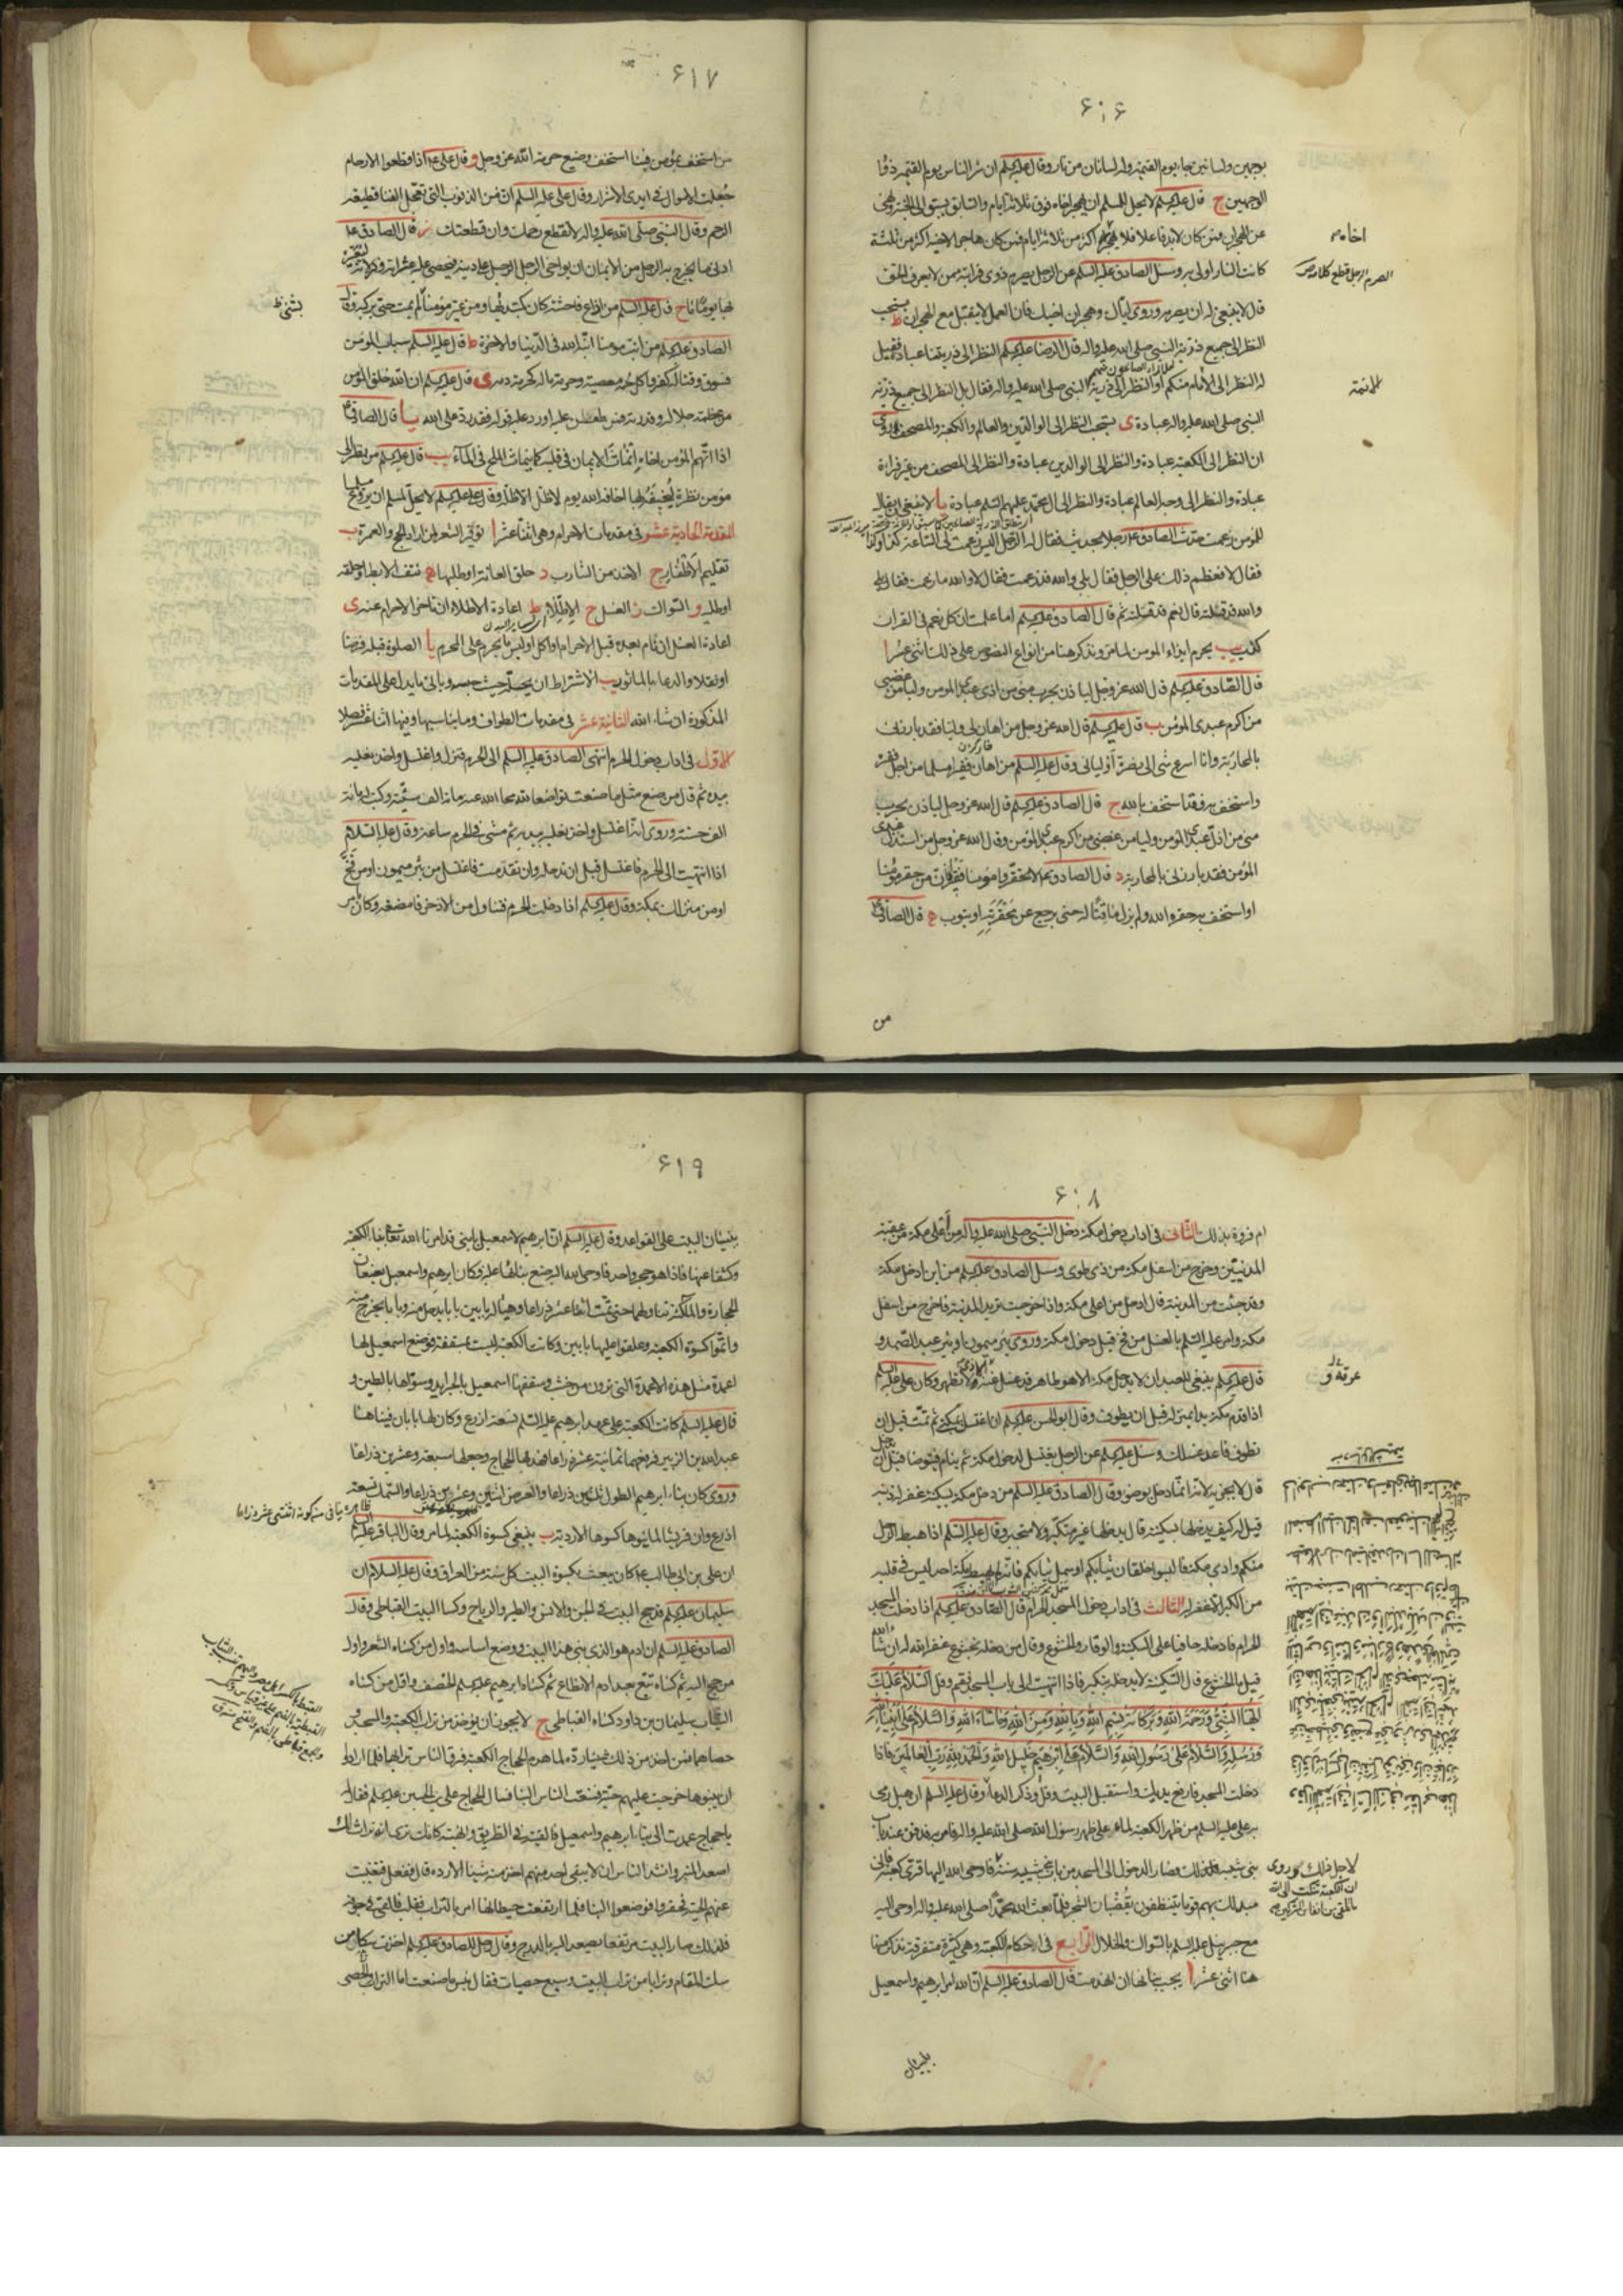 ۶۱۶
بوجهين ولسانين جاء يوم القيمة وله لسانان من نار وقال عليه السلم ان شر الناس يوم القيمة ذو
الوجهين ج قال عليه السلم لا يحل للمسلم ان يهجر اخاه فوق ثلاثة ايام والسابق يسبق الى الجنة ونهى
عن الهجران فمن كان لا بد فاعلا فلا يهجر اكثر من ثلاثة ايام فمن كان هاجرا لاخيه اكثر من ثلثة
كانت النار اولى به وسئل الصادق عليه السلم عن الرجل يصرم ذوى قرابته ممن لا يعرف الحق
قال لا ينبغى له ان يصرمه وروى اياك وهجران اخيك فان العمل لا يتقبل مع الهجران ط يستحب
النظر الى جميع ذرية النبى صلى الله عليه واله قال الرضا عليه السلم النظر الى ذريتنا عبادة فقيل
له النظر الى الائمة منكم او النظر الى ذرية النبى صلى الله عليه واله فقال بل النظر الى جميع ذرية
النبى صلى الله عليه واله عبادة ى يستحب النظر الى الوالدين والعالم والكعبة والمصحف وروى
ان النظر الى الكعبة عبادة والنظر الى الوالدين عبادة والنظر الى المصحف من غير قراءة
عبادة والنظر الى وجه العالم عبادة والنظر الى ال محمد عليهم السلم عبادة يا لا ينبغى ان يقال
للمؤمن زعمت حدث الصادق رجلا بحديث فقال له الرجل اليس زعمت لى الساعة كذا وكذا
فقال لا فعظم ذلك على الرجل فقال بلى والله قد زعمت فقال لا والله ما زعمت فقال بلى
والله قد قلته قال نعم قد قلته ثم قال الصادق عليه السلم اما علمت ان كل زعم فى القران
كذب يب يحرم ايذاء المومن لما مر ونذكر هنا من انواع النصوص على ذلك اثنى عشر ا
قال الصادق عليه السلم قال الله عز وجل لياذن بحرب منى من اذى عبدى المومن وليامن غضبى
من اكرم عبدى المؤمن ب قال عليه السلم قال الله عز وجل من اهان لى وليا فقد بارزنى
بالمحاربة وانا اسرع شى الى نصرة اوليائى وقال عليه السلم من اهان فقيرا مسلما من اجل فقره
واستخف به فقد استخف بالله ج قال الصادق عليه السلم قال الله عز وجل لياذن بحرب
منى من اذل عبدى المومن وليامن غضبى من اكرم عبدى المومن وقال الله عز وجل من استذل عبدى
المؤمن فقد بارزنى بالمحاربة د قال الصادق ع لا تحقروا مؤمنا فقيرا فان من حقر مؤمنا
او استخف به حقره الله ولم يزل ماقتا له حتى يرجع عن محقرته او يتوب ه قال الصادق ع
من
اخاه
الصرم الرجل قطع كلامه ص
الائمة
۶۱۷
من استخف بمؤمن فبنا استخف وضيع حرمة الله عز وجل و قال على ع اذا قطعوا الارحام
جعلت الاموال فى ايدى الاشرار وقال على عليه السلم ان من الذنوب التى تعجل الفناء قطيعة
الرحم وقال النبى صلى الله عليه واله لا تقطع رحمك وان قطعتك ز قال الصادق ع
ادنى ما يخرج به الرجل من الايمان ان يواخى الرجل الرجل على دينه فيحصى عليه عثراته وزلاته ليعيره
بها يوما ما ح قال عليه السلم من اذاع فاحشة كان كمبتديها ومن عير مؤمنا بشئ لم يمت حتى يركبه وقال
الصادق عليه السلم من انب مومنا انبه الله فى الدنيا والاخرة ط قال عليه السلم سباب المؤمن
فسوق وقتاله كفر واكل لحمه معصية وحرمة ماله كحرمة دمه ى قال عليه السلم ان الله خلق المؤمن
من عظمة جلاله وقدرته فمن طعن عليه او رد عليه قوله فقد رد على الله يا قال الصادق ع
اذا اتهم المؤمن اخاه انماث الايمان فى قلبه كما ينماث الملح فى الماء يب قال عليه السلم من نظر الى
مؤمن نظرة ليخيفه بها اخافه الله يوم لا ظل الا ظله وقال عليه السلم لا يحل لمسلم ان يروع مسلما
المقدمة الحادية عشر فى مقدمات الاحرام وهى اثنا عشر ا توفير الشعر لمن اراد الحج والعمرة ب
تقليم الاظفار ج الاخذ من الشارب د حلق العانة او طليها ه نتف الابط او حلقه
او طليه و السواك ز الغسل ح الاطلاء ط اعادة الاطلاء ان تاخر الاحرام عنه ى
اعادة الغسل ان نام بعده قبل الاحرام او اكل او لبس ما يحرم على المحرم يا الصلوة قبله فرضا
او نفلا والدعاء بالماثور يب الاشتراط ان يحله حيث حبسه وياتى ما يدل على المقدمات
المذكورة ان شاء الله الثانية عشر فى مقدمات الطواف وما يناسبها وفيها اثنا عشر فصلا
الاول فى اداب دخول الحرم انتهى الصادق عليه السلم الى الحرم فنزل واغتسل واخذ نعليه
بيده ثم قال من صنع مثل ما صنعت تواضعا لله محا الله عنه مائة الف سيئة وكتب له مائة
الف حسنة وروى انه اغتسل واخذ نعليه بيديه ثم مشى فى الحرم ساعة وقال عليه السلام
اذا انتهيت الى الحرم فاغتسل قبل ان تدخله وان تقدمت فاغتسل من بئر ميمون او من فخ
او من منزلك بمكة وقال عليه السلم اذا دخلت الحرم فتناول من الاذخر فامضغه وكان يامر
بشئ ظ
۶۱۸
ام فروة بذلك الثانى فى اداب دخول مكة دخل النبى صلى الله عليه واله من اعلى مكة من عقبة
المدنيين وخرج من اسفل مكة من ذى طوى وسئل الصادق عليه السلم من اين ادخل مكة
وقد جئت من المدينة قال ادخل من اعلى مكة واذا خرجت تريد المدينة فاخرج من اسفل
مكة وامر عليه السلم بالغسل من فخ قبل دخول مكة وروى بئر ميمون او بئر عبد الصمد و
قال عليه السلم ينبغى للعبد ان لا يدخل مكة الا وهو طاهر قد غسل عرقه والاذى وتطهر وكان على عليه السلم
اذا قدم مكة بدا بمنزله قبل ان يطوف وقال ابو الحسن عليه السلم ان اغتسلت بمكة ثم نمت قبل ان
تطوف فاعد غسلك وسئل عليه السلم عن الرجل يغتسل لدخول مكة ثم ينام فيتوضا قبل ان يدخل
قال لا يجزيه لانه انما دخل بوضوء وقال الصادق عليه السلم من دخل مكة بسكينة غفر له ذنبه
قيل له كيف يدخلها بسكينة قال يدخلها غير متكبر ولا متجبر وقال عليه السلم اذا هبط الرجل
منكم وادى مكة فالبسوا خلقان ثيابكم او سمل ثيابكم فانه لم يهبط مكة احد ليس فى قلبه
من الكبر الا غفر له الثالث فى اداب دخول المسجد الحرام قال الصادق عليه السلم اذا دخلت المسجد
الحرام فادخله حافيا على السكينة والوقار والخشوع وقال من دخله بخشوع غفر الله له ان شاء الله
قيل ما الخشوع قال السكينة لا يدخله بتكبر فاذا انتهيت الى باب المسجد فقم وقل السلام عليك
ايها النبى ورحمة الله وبركاته بسم الله وبالله ومن الله وما شاء الله والسلام على انبياء الله
ورسله والسلام على رسول الله والسلام على ابرهيم خليل الله والحمد لله رب العالمين فاذا
دخلت المسجد فارفع يديك واستقبل البيت وقل وذكر الدعاء وقال عليه السلم ان هبل رمى
به على عليه السلم من ظهر الكعبة لما علا ظهر رسول الله صلى الله عليه واله فامر به فدفن عند باب
بنى شيبة فلذلك صار الدخول الى المسجد من باب بنى شيبة سنة فاوحى الله اليها قرى كعبة فانى
مبدلك بهم قوما يتنظفون بقضبان الشجر فلما بعث الله محمدا صلى الله عليه واله اوحى اليه
مع جبرئيل عليه السلم بالسواك والخلال الرابع فى احكام الكعبة وهى كثيرة متفرقة نذكر منها
هنا اثنى عشر ا يجب بناؤها ان انهدمت قال الصادق عليه السلم ان الله امر ابرهيم واسمعيل
ببنيان
عرقه
لاجل ذلك وروى
ان الكعبة شكت الى الله
ما تلقى من انفاس المشركين
۶۱۹
ببنيان البيت على القواعد وقال عليه السلم ان ابرهيم قال لاسمعيل يا بنى قد امرنا الله تعالى ببناء الكعبة
وكشفا عنها فاذا هو حجر واحد فاوحى الله اليه ضع بناءها عليه وكان ابرهيم واسمعيل يضعان
الحجارة والملائكة تناولهما حتى تمت اثنا عشر ذراعا وهيئا له بابين بابا يدخل منه وبابا يخرج منه
واتموا كسوة الكعبة وعلقوا عليها بابين وكانت الكعبة ليست بمسقفة فوضع اسمعيل لها
اعمدة مثل هذه الاعمدة التى ترون من خشب وسقفها اسمعيل بالجرايد وسواها بالطين و
قال عليه السلم كانت الكعبة على عهد ابرهيم عليه السلم تسعة اذرع وكان لها بابان فبناها
عبد الله بن الزبير فرفعها ثمانية عشر ذراعا فهدمها الحجاج وجعلها سبعة وعشرين ذراعا
وروى كان بناء ابرهيم الطول ثلثين ذراعا والعرض اثنين وعشرين ذراعا والسمك تسعة
اذرع وان قريشا لما بنوها كسوها الاردية ب ينبغى كسوة الكعبة لما مر وقال الباقر عليه السلم
ان على بن ابى طالب ع كان يبعث بكسوة البيت كل سنة من العراق وقال عليه السلام ان
سليمان عليه السلم قد حج البيت فى الجن والانس والطير والرياح وكسا البيت القباطى وقال
الصادق عليه السلم ان ادم هو الذى بنى هذا البيت ووضع اساسه واول من كساه الشعر واول
من حج اليه ثم كساه تبع بعد ادم الانطاع ثم كساه ابرهيم عليه السلم الخصف واول من كساه
الثياب سليمان بن داود كساه القباطى ج لا يجوز ان يؤخذ من تراب الكعبة والمسجد و
حصاهما فمن اخذ من ذلك شيئا رده لما هدم الحجاج الكعبة فرق الناس ترابها فلما ارادوا
ان يبنوها خرجت عليهم حية فمنعت الناس البناء فسال الحجاج على بن الحسين عليه السلم فقال
يا حجاج عمدت الى بناء ابرهيم واسمعيل فالقيته فى الطريق وانتهبته كانك ترى انه تراث لك
اصعد المنبر وانشد الناس ان لا يبقى احد منهم اخذ منه شيئا الا رده قال ففعل فتغيبت
عنهم الحية فحفروا فوضعوا البناء فلما ارتفعت حيطانها امر بالتراب فقلب فالقى فى جوفه
فلذلك صار البيت مرتفعا يصعد اليه بالدرج وقال رجل للصادق عليه السلم اخذت سكا من
سك المقام وترابا من تراب البيت وسبع حصيات فقال بئس ما صنعت اما التراب والحصى